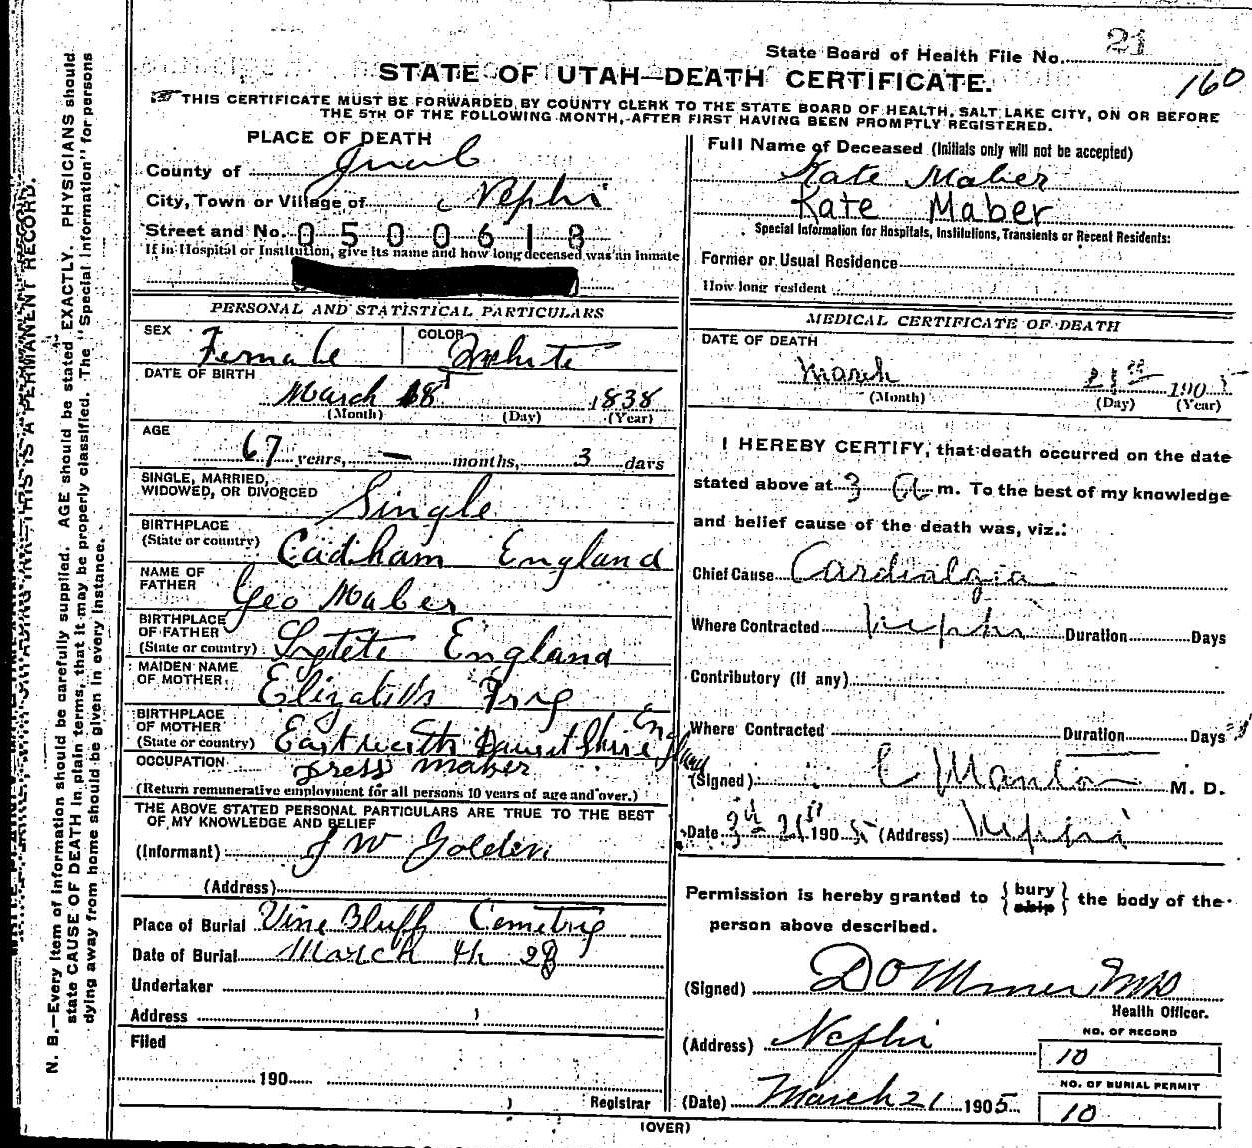 State Board of Health File No. 21
160
STATE OF UTAH—DEATH CERTIFICATE.
THIS CERTIFICATE MUST BE FORWARDED BY COUNTY CLERK TO THE STATE BOARD OF HEALTH, SALT LAKE CITY, ON OR BEFORE
THE 5TH OF THE FOLLOWING MONTH, AFTER FIRST HAVING BEEN PROMPTLY REGISTERED.
PLACE OF DEATH
County of Juab
City, Town or Village of Nephi
Street and No. 0500618
If in Hospital or Institution, give its name and how long deceased was an inmate
PERSONAL AND STATISTICAL PARTICULARS
SEX Female COLOR White
DATE OF BIRTH
March 18 1838
(Month) (Day) (Year)
AGE
67 years, — months, 3 days
SINGLE, MARRIED,
WIDOWED, OR DIVORCED Single
BIRTHPLACE
(State or country) Cadham England
NAME OF
FATHER Geo Maber
BIRTHPLACE
OF FATHER
(State or country) England
MAIDEN NAME
OF MOTHER
BIRTHPLACE
OF MOTHER
(State or country)
OCCUPATION Dress maker
(Return remunerative employment for all persons 10 years of age and over.)
THE ABOVE STATED PERSONAL PARTICULARS ARE TRUE TO THE BEST
OF MY KNOWLEDGE AND BELIEF
(Informant) J W Golden
(Address)
Place of Burial Vine Bluff Cemetry
Date of Burial March
Undertaker
Address
Filed
190
Registrar
Full Name of Deceased (Initials only will not be accepted)
Kate Maber
Kate Maber
Special Information for Hospitals, Institutions, Transients or Recent Residents:
Former or Usual Residence
How long resident
MEDICAL CERTIFICATE OF DEATH
DATE OF DEATH
March 21 1905
(Month) (Day) (Year)
I HEREBY CERTIFY, that death occurred on the date
stated above at 3 a m. To the best of my knowledge
and belief cause of the death was, viz.:
Chief Cause Cardialgia
Where Contracted Nephi Duration Days
Contributory (if any)
Where Contracted Duration Days
(Signed) M. D.
Date 190 5 (Address) Nephi
Permission is hereby granted to { bury ship } the body of the
person above described.
(Signed)
Health Officer.
(Address) Nephi
(Date) March 21 1905
NO. OF RECORD
10
NO. OF BURIAL PERMIT
10
(OVER)
N. B.—Every item of information should be carefully supplied. AGE should be stated EXACTLY. PHYSICIANS should
state CAUSE OF DEATH in plain terms, that it may be properly classified. The "Special Information" for persons
dying away from home should be given in every instance.
THIS IS A PERMANENT RECORD.